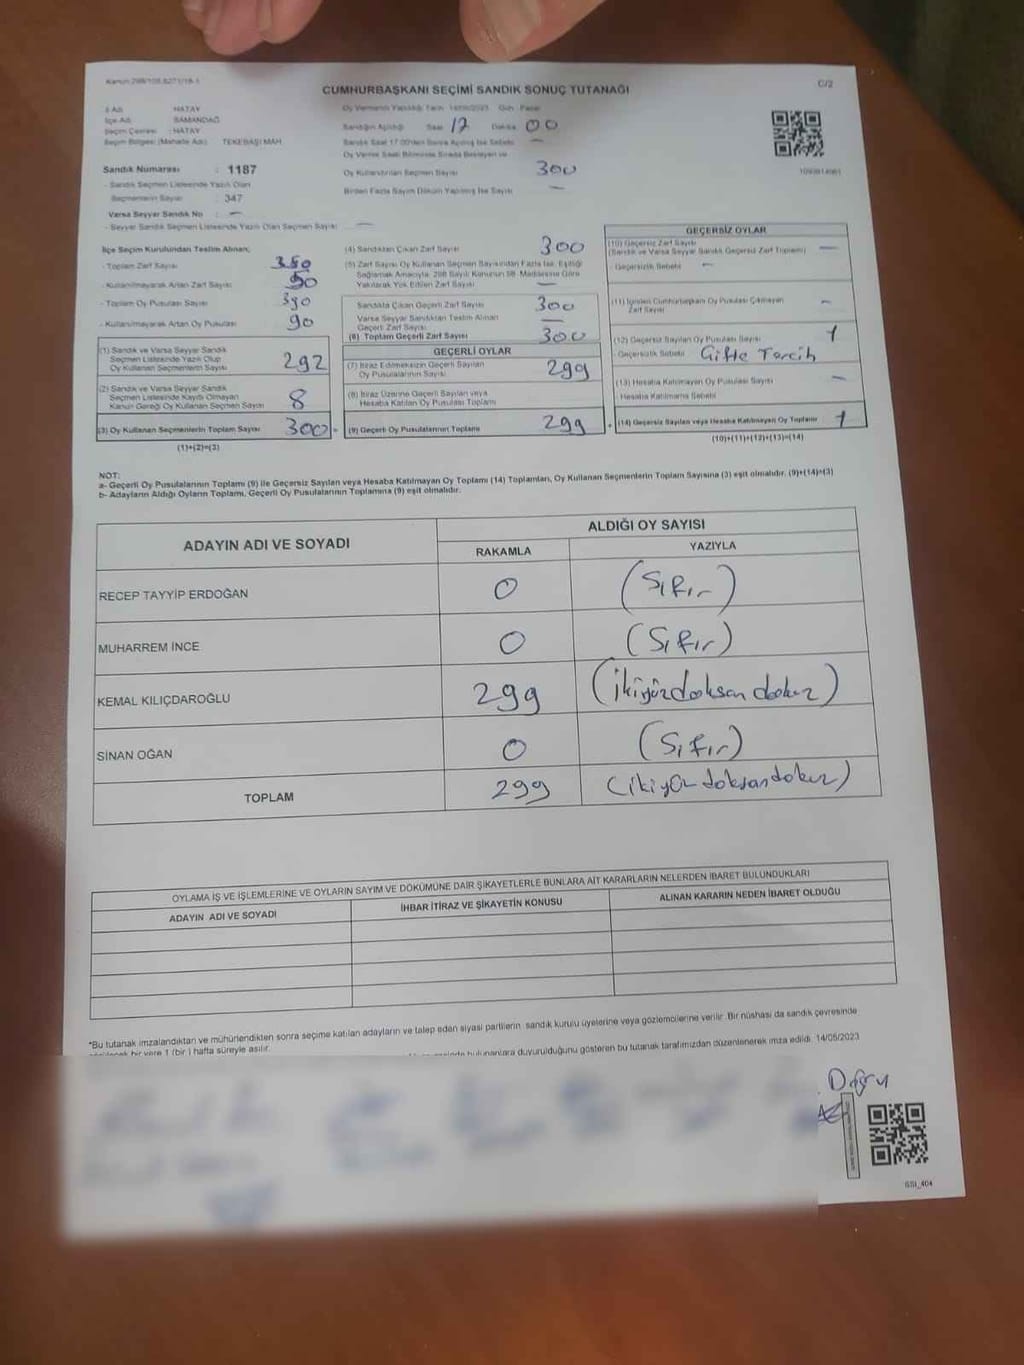 Kanun:298/105,6271/18-1
C/2
CUMHURBAŞKANI SEÇİMİ SANDIK SONUÇ TUTANAĞI
İl Adı HATAY
İlçe Adı SAMANDAĞ
Seçim Çevresi : HATAY
Seçim Bölgesi (Mahalle Adı) TEKEBAŞI MAH
Oy Vermenin Yapıldığı Tarih 14/05/2023 Gün Pazar
Sandığın Açıldığı Saat 17 Dakika 00
Sandık Saat 17.00'den Sonra Açılmış İse Sebebi —
Oy Verme Saati Bitiminde Sırada Bekleyen ve
Oy Kullandırılan Seçmen Sayısı 300
Birden Fazla Sayım Döküm Yapılmış İse Sayısı —
Sandık Numarası : 1187
- Sandık Seçmen Listesinde Yazılı Olan
Seçmenlerin Sayısı : 347
Varsa Seyyar Sandık No : —
- Seyyar Sandık Seçmen Listesinde Yazılı Olan Seçmen Sayısı : —
İlçe Seçim Kurulundan Teslim Alınan;
- Toplam Zarf Sayısı
- Kullanılmayarak Artan Zarf Sayısı
- Toplam Oy Pusulası
- Kullanılmayarak Artan Oy Pusulası 90
(1) Sandık ve Varsa Seyyar Sandık
Seçmen Listesinde Yazılı Olup
Oy Kullanan Seçmenlerin Sayısı 292
(2) Sandık ve Varsa Seyyar Sandık
Seçmen Listesinde Kayıtlı Olmayan
Kanun Gereği Oy Kullanan Seçmen Sayısı 8
(3) Oy Kullanan Seçmenlerin Toplam Sayısı 300
(1)+(2)=(3)
(4) Sandıktan Çıkan Zarf Sayısı 300
(5) Zarf Sayısı Oy Kullanan Seçmen Sayısından Fazla İse, Eşitliği
Sağlamak Amacıyla, 298 Sayılı Kanunun 98. Maddesine Göre
Yakılarak Yok Edilen Zarf Sayısı —
Sandıkta Çıkan Geçerli Zarf Sayısı 300
Varsa Seyyar Sandıktan Teslim Alınan
Geçerli Zarf Sayısı —
(6) Toplam Geçerli Zarf Sayısı 300
GEÇERLİ OYLAR
(7) İtiraz Edilmeksizin Geçerli Sayılan
Oy Pusulalarının Sayısı 299
(8) İtiraz Üzerine Geçerli Sayılan veya
Hesaba Katılan Oy Pusulası Toplamı
(9) Geçerli Oy Pusulalarının Toplamı 299
GEÇERSİZ OYLAR
(10) Geçersiz Zarf Sayısı
(Sandık ve Varsa Seyyar Sandık Geçersiz Zarf Toplamı) —
- Geçersizlik Sebebi —
(11) İçinden Cumhurbaşkanı Oy Pusulası Çıkmayan
Zarf Sayısı —
(12) Geçersiz Sayılan Oy Pusulası Sayısı 1
- Geçersizlik Sebebi Çifte Tercih
(13) Hesaba Katılmayan Oy Pusulası Sayısı —
- Hesaba Katılmama Sebebi
(14) Geçersiz Sayılan veya Hesaba Katılmayan Oy Toplamı 1
(10)+(11)+(12)+(13)=(14)
NOT:
a- Geçerli Oy Pusulalarının Toplamı (9) ile Geçersiz Sayılan veya Hesaba Katılmayan Oy Toplamı (14) Toplamları, Oy Kullanan Seçmenlerin Toplam Sayısına (3) eşit olmalıdır. (9)+(14)=(3)
b- Adayların Aldığı Oyların Toplamı, Geçerli Oy Pusulalarının Toplamına (9) eşit olmalıdır.
ADAYIN ADI VE SOYADI
ALDIĞI OY SAYISI
RAKAMLA YAZIYLA
RECEP TAYYİP ERDOĞAN 0 (Sıfır)
MUHARREM İNCE 0 (Sıfır)
KEMAL KILIÇDAROĞLU 299 (ikiyüzdoksan dokuz)
SİNAN OĞAN 0 (Sıfır)
TOPLAM 299 (ikiyüz doksandokuz)
OYLAMA İŞ VE İŞLEMLERİNE VE OYLARIN SAYIM VE DÖKÜMÜNE DAİR ŞİKAYETLERLE BUNLARA AİT KARARLARIN NELERDEN İBARET BULUNDUKLARI
ADAYIN ADI VE SOYADI İHBAR İTİRAZ VE ŞİKAYETİN KONUSU ALINAN KARARIN NEDEN İBARET OLDUĞU
*Bu tutanak imzalandıktan ve mühürlendikten sonra seçime katılan adayların ve talep eden siyasi partilerin sandık kurulu üyelerine veya gözlemcilerine verilir. Bir nüshası da sandık çevresinde
bir yere 1 (bir) hafta süreyle asılır. bulunanlara duyurulduğunu gösteren bu tutanak tarafımızdan düzenlenerek imza edildi. 14/05/2023
Doğru